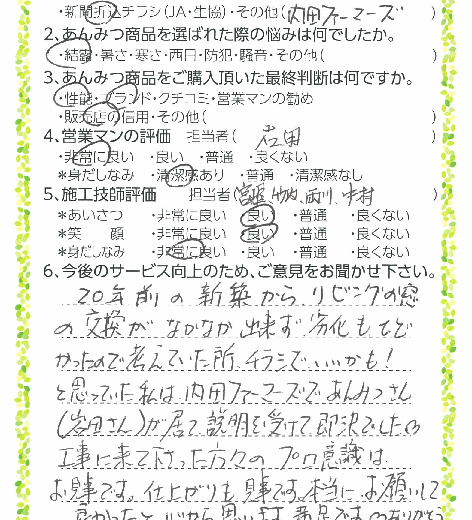 ・新聞折込チラシ（JA・生協）・その他（内田ファーマーズ）
2、あんみつ商品を選ばれた際の悩みは何でしたか。
・結露・暑さ・寒さ・西日・防犯・騒音・その他（　）
3、あんみつ商品をご購入頂いた最終判断は何ですか。
・性能・ブランド・クチコミ・営業マンの勧め
・販売店の信用・その他（　）
4、営業マンの評価　担当者（岩田　）
・非常に良い　・良い　・普通　・良くない
＊身だしなみ　・清潔感あり　・普通　・清潔感なし
5、施工技師評価　担当者（竹内、西川、中村
＊あいさつ　・非常に良い　・良い　・普通　・良くない
＊笑　顔　・非常に良い　・良い　・普通　・良くない
＊身だしなみ　・非常に良い　・良い　・普通　・良くない
6、今後のサービス向上のため、ご意見をお聞かせ下さい。
20年前の新築からリビングの窓
の交換がなかなか出来ず劣化もひど
かったので考えていた所、チラシで、いいかも！
と思っていた私は内田ファーマーズであんみつさん
（岩田さん）が居て説明を受けて即決でした
工事に来て下さった方々のプロ意識は
お見事です。仕上がりも見事です。本当にお願いして
良かったと心から思います